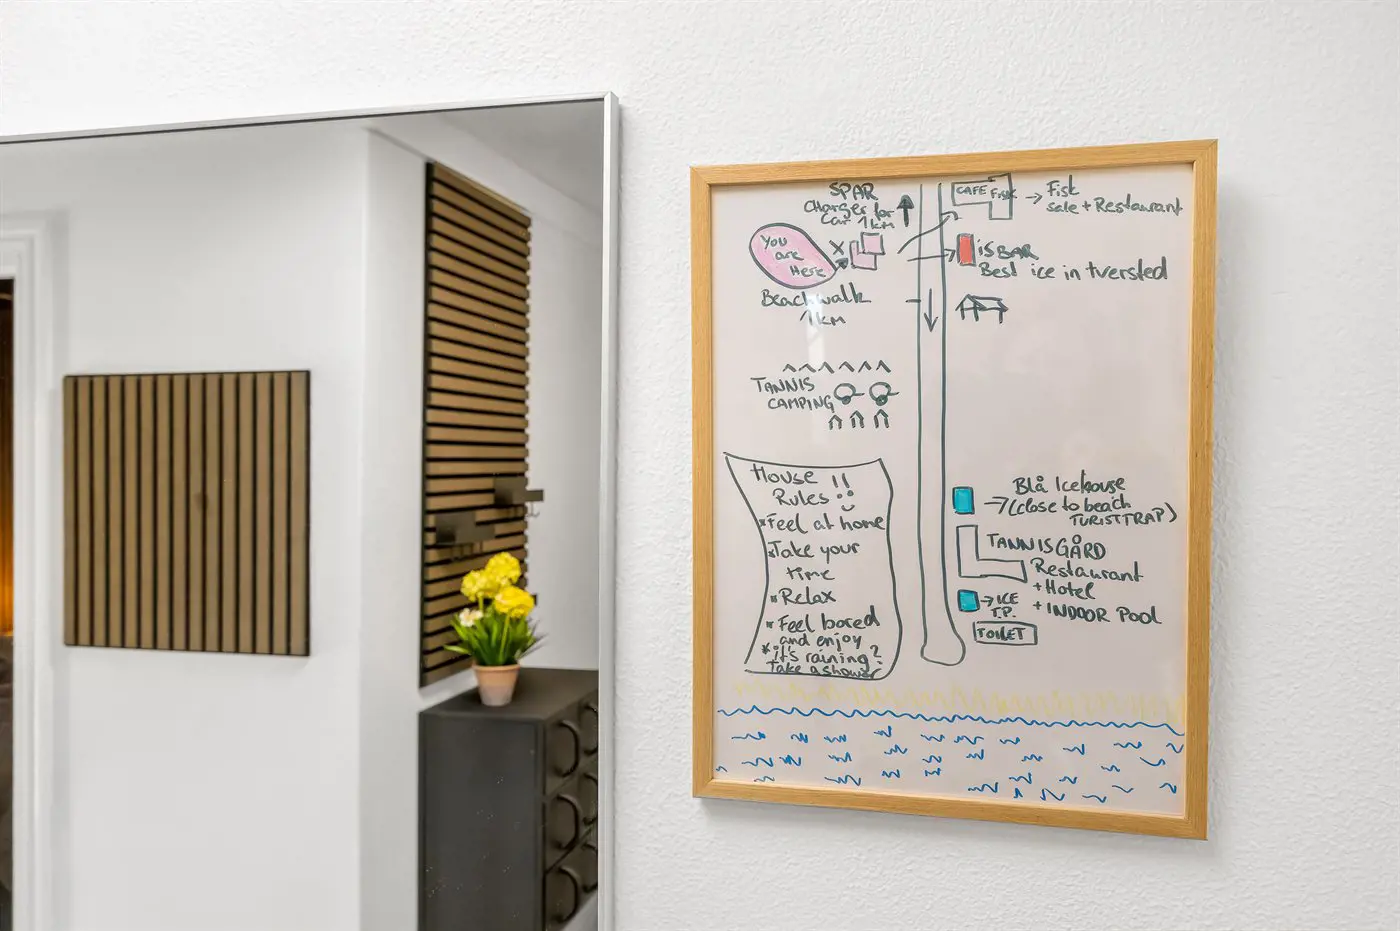 SPAR
charger for
car 1km
CAFE Fisk
→ Fisk
sale + Restaurant
You
are
Here
X
ISBAR
Best ice in tversted
Beachwalk
1km
TANNIS
CAMPING
House !!
Rules
* Feel at home
* Take your
time
* Relax
* Feel bored
and enjoy
* it's raining?
Take a shower
Blå Icehouse
→ (close to beach
TURISTTRAP)
TANNISGÅRD
Restaurant
+ Hotel
+ INDOOR POOL
→ ICE
T.P.
TOILET